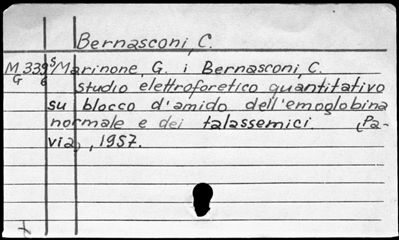 Bernasconi, C.
M 339 S/Marinone, G. i Bernasconi, C.
G 6
studio elettroforetico quantitativo
su blocco d'amido dell'emoglobina
normale e dei talassemici. (Pa-
via), 1957.